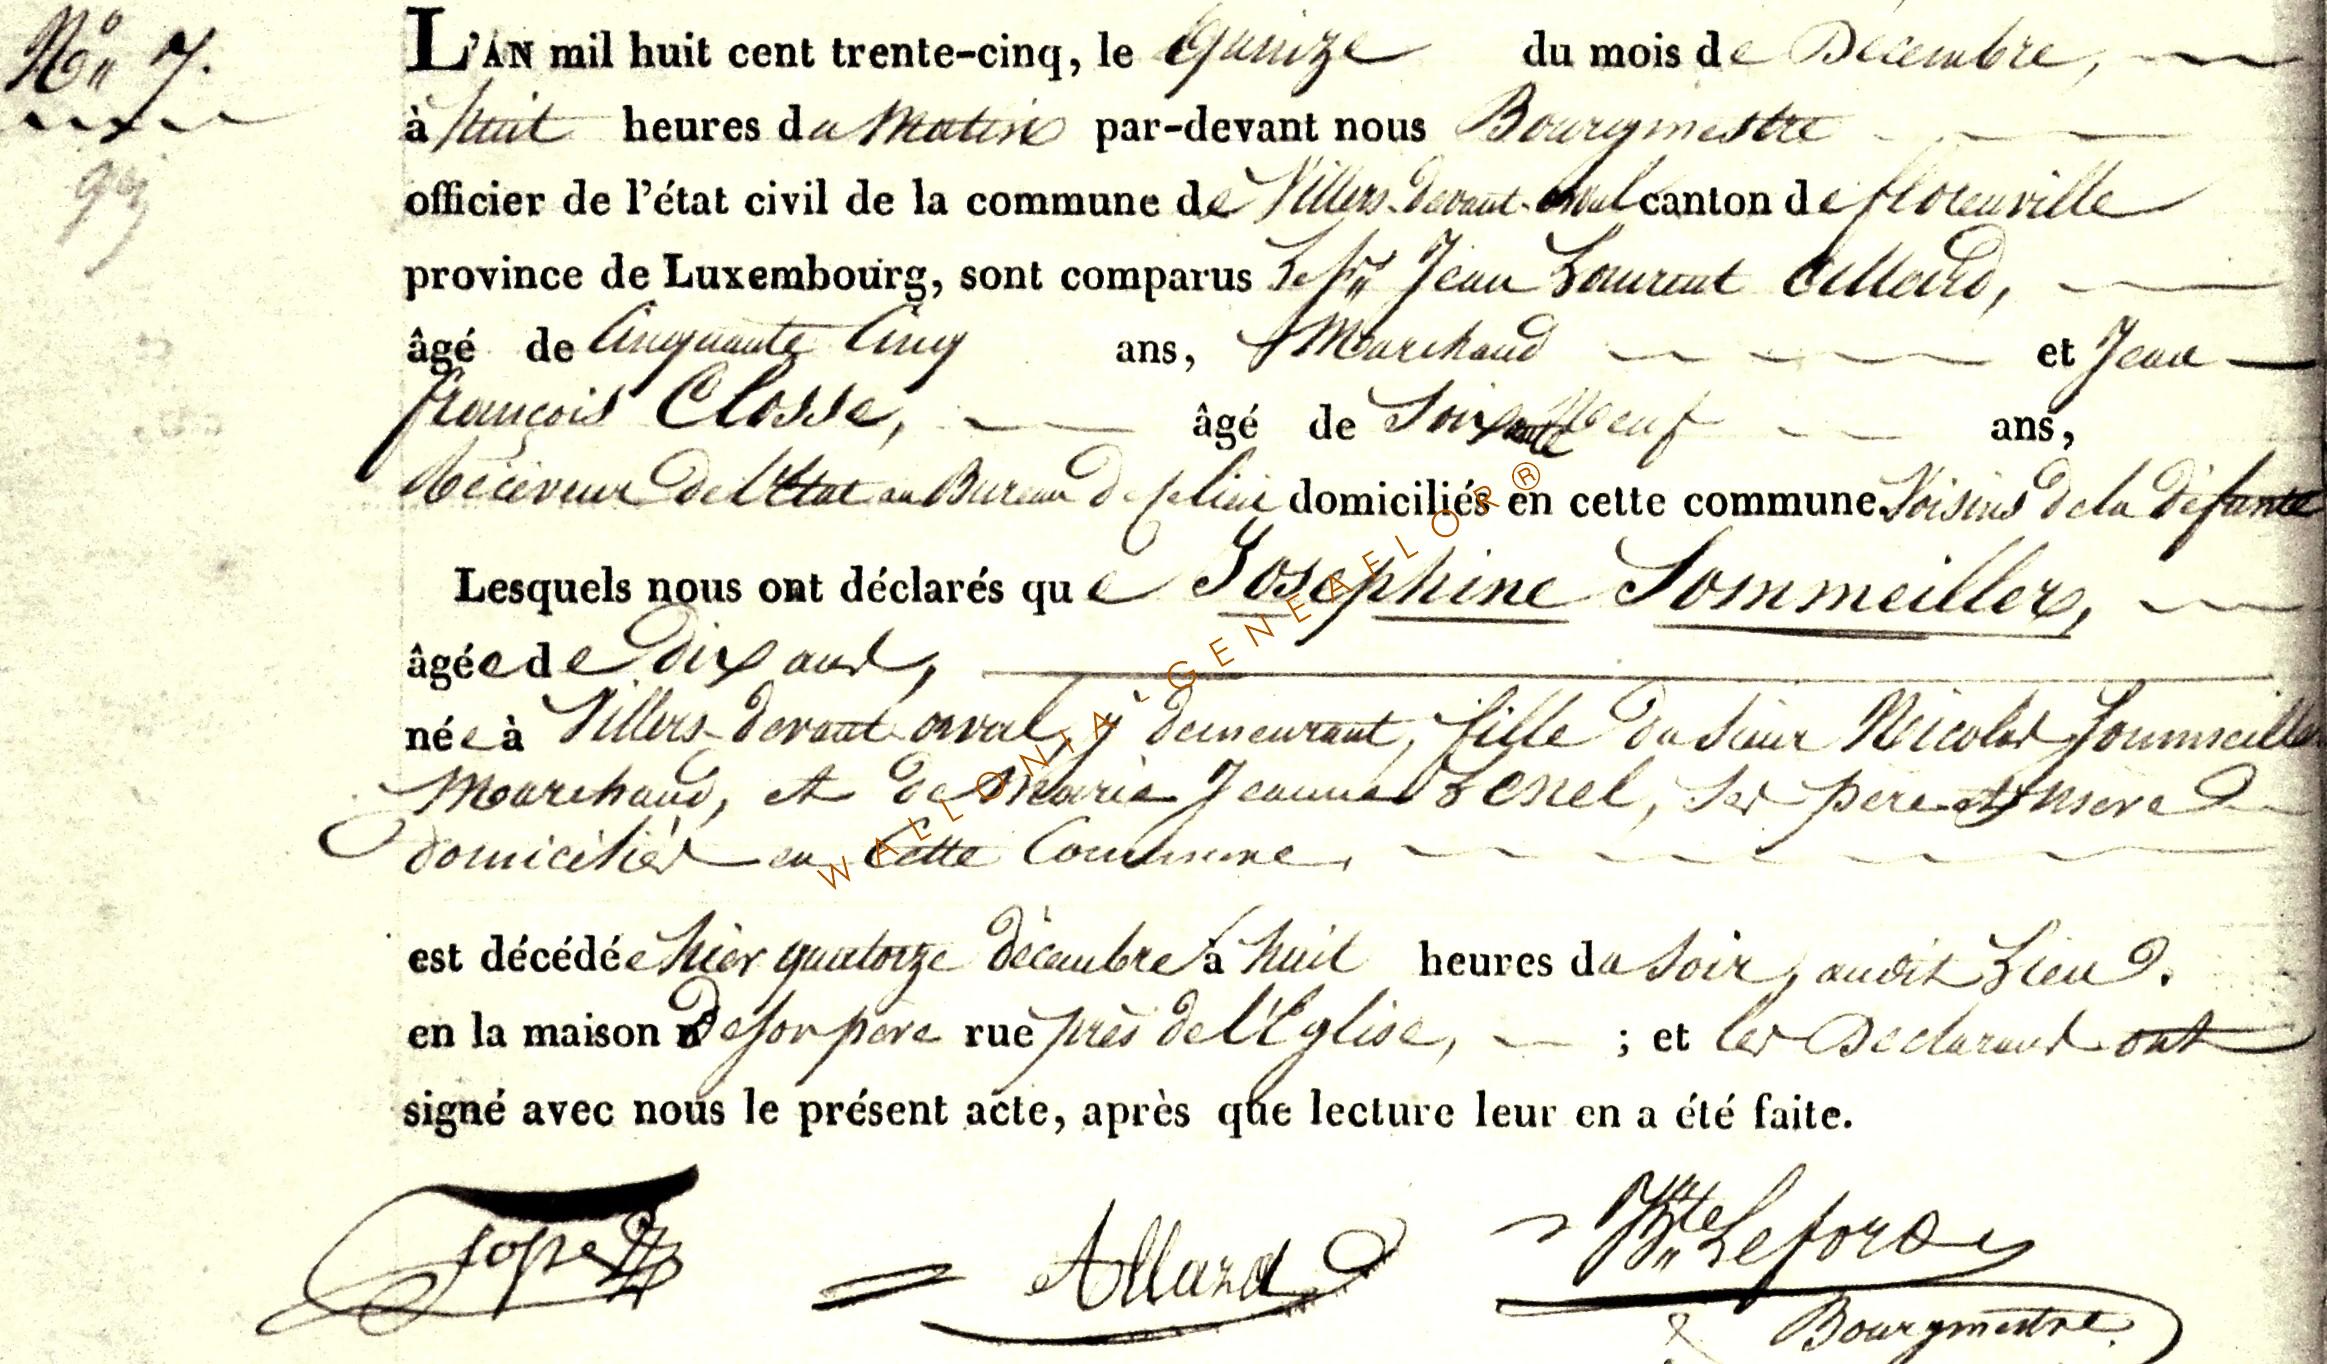 N° 7.
L'AN mil huit cent trente-cinq, le Quinze du mois de Décembre,
à huit heures du Matin par-devant nous Bourgmestre
officier de l'état civil de la commune de Villers-devant-orval canton de florenville
province de Luxembourg, sont comparus Le Sr Jean Laurent Allard,
âgé de Cinquante Cinq ans, Marchand et Jean
françois Closse, âgé de Soixante Neuf ans,
Receveur de l'Etat au Bureau de domiciliés en cette commune. Voisins de la défunte
Lesquels nous ont déclarés que Josephine Sommeiller,
âgée de dix ans,
née à Villers-devant-orval, y demeurant, fille du Sieur Nicolas Sommeiller
Marchand, et de Marie Jeanne Lenel, ses père et mère
domiciliés en Cette Commune,
est décédée hier quatorze décembre à huit heures du Soir, audit Lieu.
en la maison De son père rue près de l'Eglise, ; et les Déclarans ont
signé avec nous le présent acte, après que lecture leur en a été faite.
Allard
Bte Lefort
Bourgmestre.
WALLONIA - GENEAELOR ®